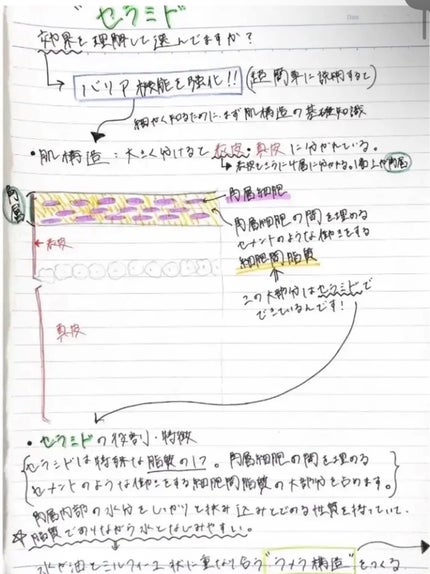 "セラミド"
Date
効果を理解して選んでますか?
バリア機能を強化!! (超簡単に説明すると)
細かく知るために、まず肌構造の基礎知識
・肌構造:大きく分けると表皮・真皮に分かれている。
表皮もさらに4層に分かれる。1番上が角層
角層
角層細胞
角層細胞の間を埋める
セメントのような働きをする
細胞間脂質
表皮
この大部分はセラミドで
できているんです!
真皮
・セラミドの役割・特徴
セラミドは特殊な脂質の1つ。角層細胞の間を埋める
セメントのような働きをする細胞間脂質の大部分を占めます。
角層内部の水分をしっかりと挟み込みとどめる性質を持っていて、
脂質でありながら水となじみやすい。
水や油とミルフィーユ状に重なり合う"ラメラ構造"をつくる